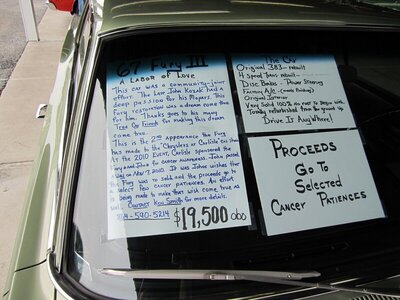 '67 Fury III
A Labor of Love
This car was a community-joint
effort. The Late John Kozak had a
deep passion for his Mopars. This
Fury restoration was a dream come true
for him. Thanks goes to his many
True Car Friends for making this dream
come true.
This is the 2nd appearance the Fury
has made to the "Chryslers at Carlisle" Car Show.
At the 2010 EVENT, Carlisle sponsored the
Fury and John for cancer awareness. John passed
away on Nov 7, 2010. It was Johns wishes that
the Fury was to be sold and the proceeds go to
select PSO cancer patiences. An effort
is being made to make that wish come true as
well. Contact Ken Smith for more details.
814-590-5214 $19,500 obo
The Car
Original 383 - rebuilt
4 Speed Trans - rebuilt
Disc Brakes - Power Steering
Factory A/C
Original Interior
Very Solid 100% no rust to begin with
Totally refurbished from the ground up
Drive It AnyWhere!
Proceeds
Go To
Selected
Cancer Patiences